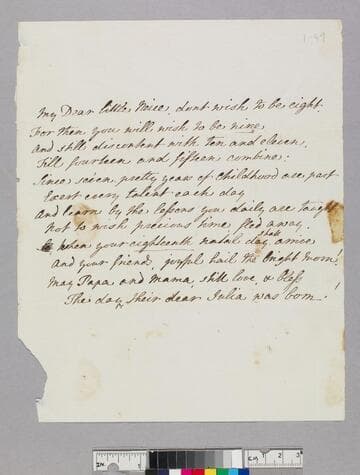 1-49
My Dear little Neice, dont wish to be eight.
For then you will wish to be nine,
And still discontent with ten and eleven,
Till fourteen and fifteen combine:
Since seven pretty years of Childhood are past
every talent each day
And learn by the lessons you daily are taught
Not to wish precious time fled away.
when your eighteenth natal day shall arrive
And your friends joyful hail the bright morn!
May Papa and Mama, still love & bless
The day, their dear Julia was born!
IN
CM 1 2 3